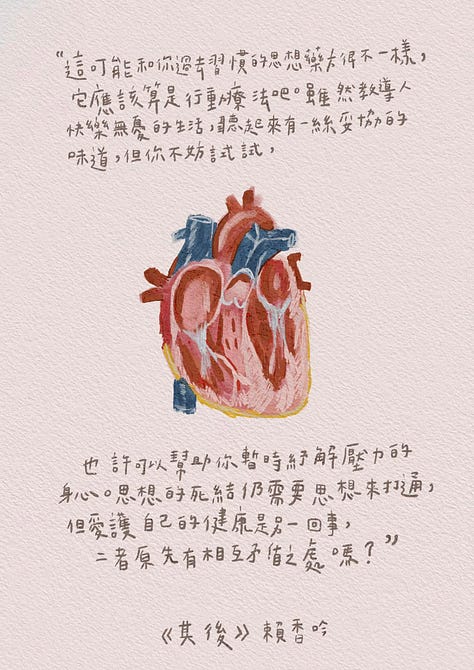 “這可能和你過去習慣的思想藥方很不一樣,
它應該算是行動療法吧。雖然教導人
快樂無憂的生活,聽起來有一絲妥協的
味道,但你不妨試試,
也許可以幫助你暫時紓解壓力的
身心。思想的死結仍需要思想來打通,
但愛護自己的健康是另一回事,
二者原先有相互矛盾之處嗎?”
《其後》賴香吟